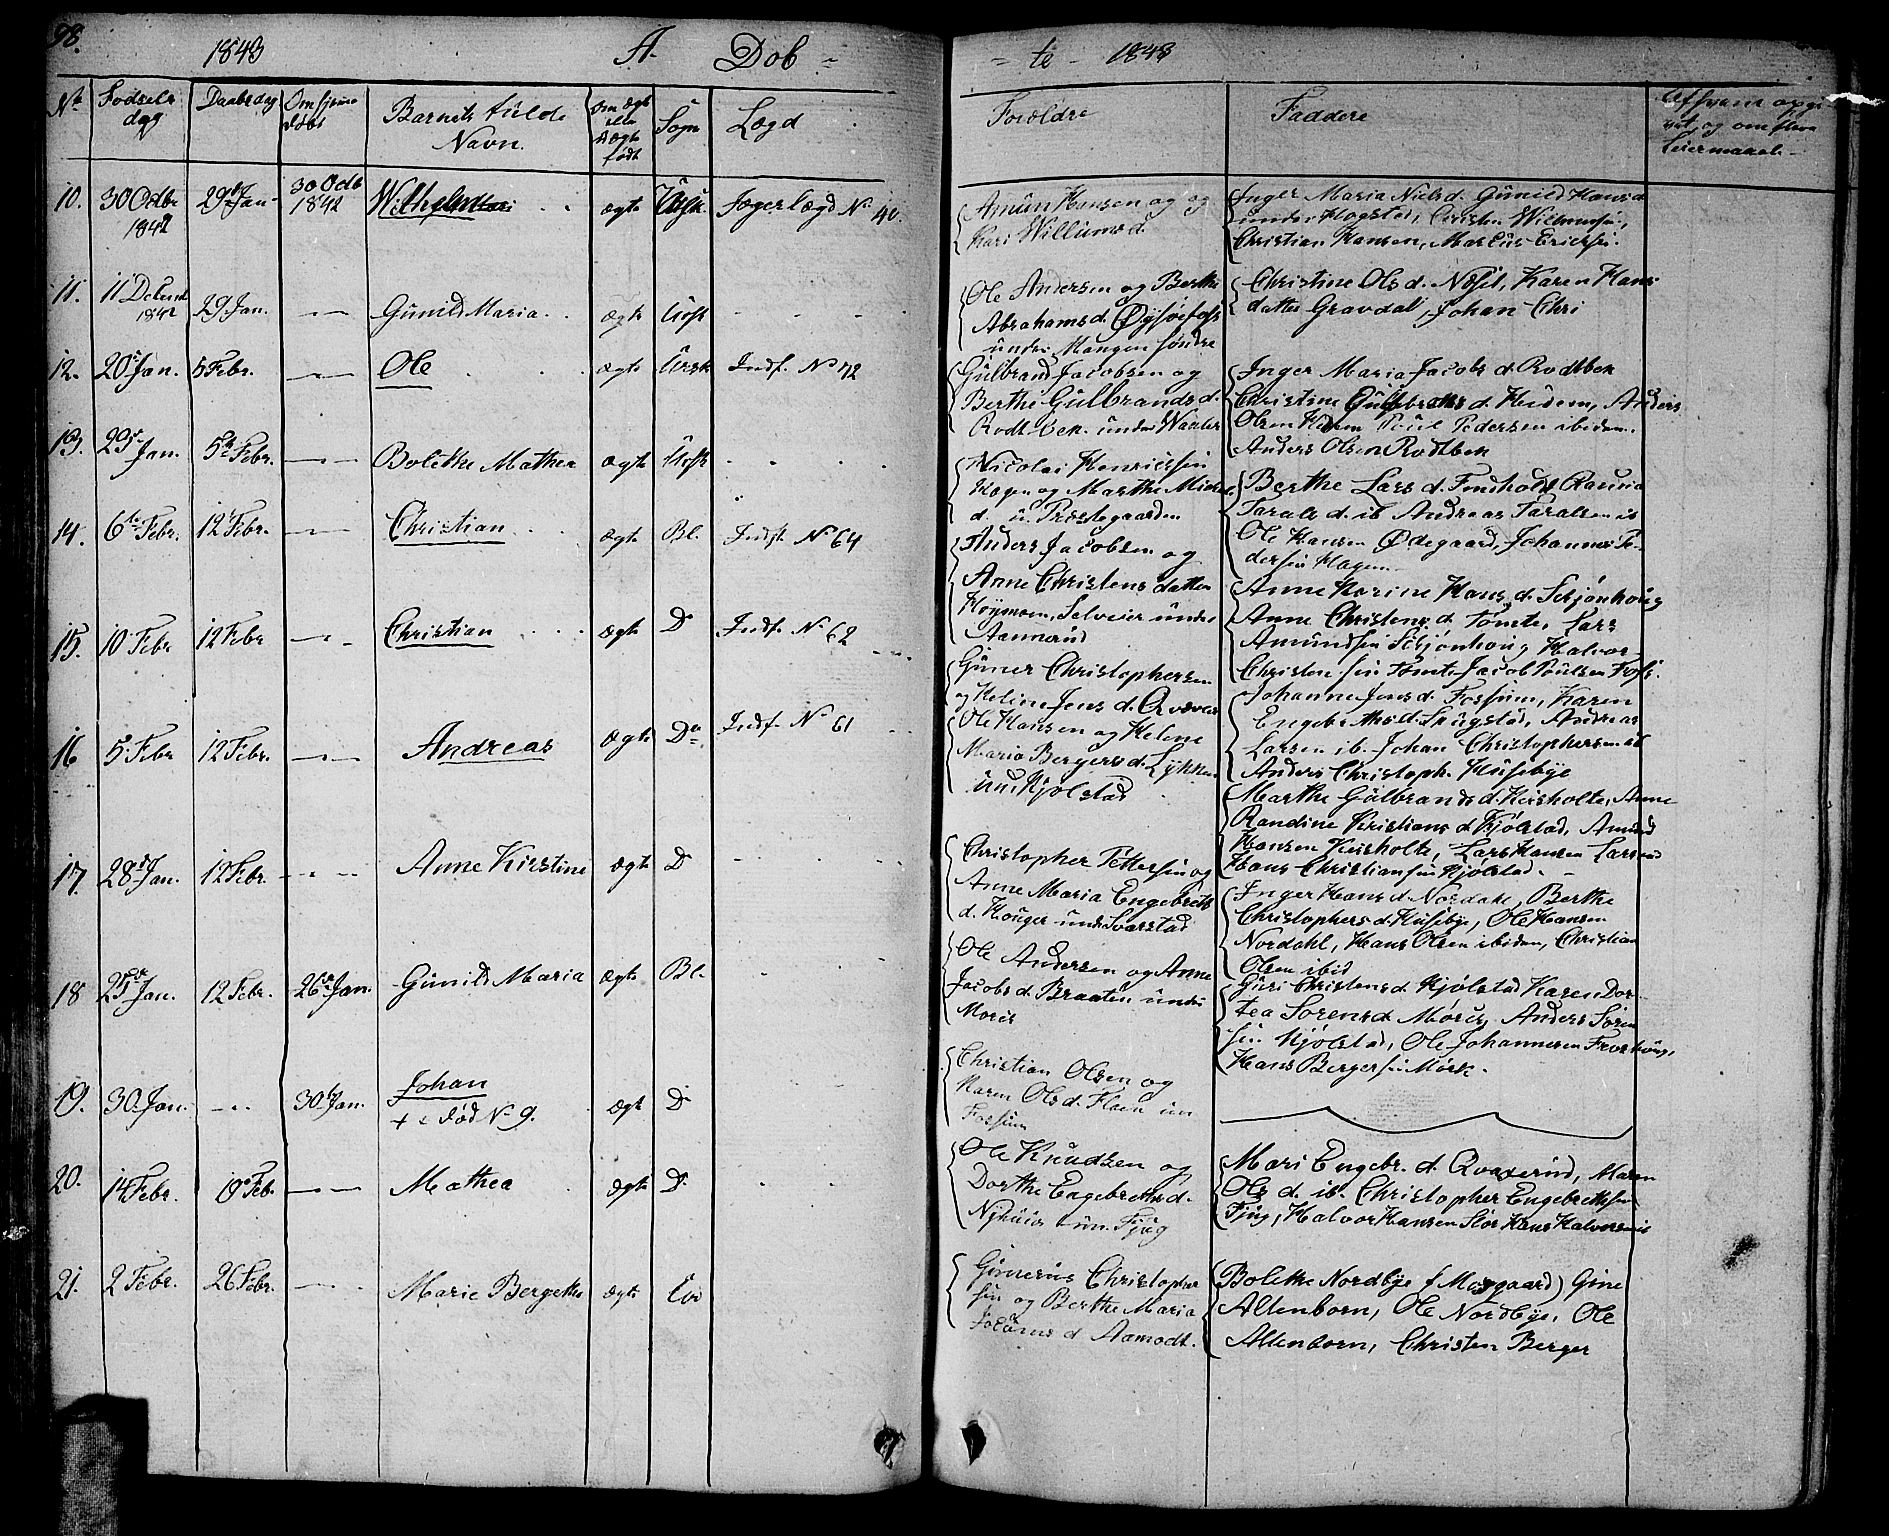 98.
1843 A. Døb -
- te - 1843
No Fødsels dag Daabsdag Om hjemme døbt Barnets fulde Navn. Om ægte eller uægte født Sogn Lægd
Forældre Faddere
10. 30 Octbr 1842 29de Jan. 30 Octb 1842 ægte Ursk. Jægerlægd No 40.
Amun Hansen og og
Kari Willumsd.
Inger Maria Nielsd. Gunild Hansd
under Hogstad, Christen Willumsen,
Christian Hansen, Marius Ericksen.
11. 11 Decemb 1842 29 Jan. - - Gunild Maria. ægte Ursk
Ole Andersen og Berthe
Abrahamsd. Øysøefoss
under Mangen søndre
Christine Olsd. Næset, Karen Hans
datter Gravdal, Johan Chri
12. 20de Jan. 5 Febr. - - Ole ægte Ursk Indf. No 42
Gulbrand Jacobsen og
Berthe Gulbrandsd.
Rodtbek. under Waaler
Inger Maria Jacobsd Rodtbek
Christine Gulbrandsd. Heidem, Anders
Olsen Poul Pedersen ibidem.
Anders Olsen Rodtbek
13. 29de Jan. 5te Febr. - - Bolethe Mathea ægte Ursk
Nicolai Henricksen
Hagen og Marthe
d. u. Præstegaarden
Berthe Larsd.
Taralsd. ib Andreas Taralsen ib
Ole Hansen Ødegaard, Johannes Pe-
dersen Hagen.
14. 6te Febr. 12te Febr. - - Christian ægte Bl. Indf. No 64
Anders Jacobsen og
Anne Christensdatter
Høymoen, Selveier under
Aannerud
Anne Karine Hansd. Schjønhoug
Anne Christensd. Tomte, Lars
Amundsen Schjønhoug Halvor
Christensen Tomte, Jacob Poulsen
15. 10 Febr 12 Febr - - Christian ægte Do Indf. No 62
Guner Christophersen
og Heline Jensd.
Johanne Jensd. Fossum, Karen
Engebrethsd. Andreas
Larsen ib. Johan Christophersen ib
Anders Christoph. Husebye
16 5 Febr 12 Febr. - - Andreas ægte Do Indf. No 61
Ole Hansen og Helene
Maria Bergersd. Lykken
und Kjølstad
Marthe Gulbrandsd. Heisholte, Anne
Randine Kristiansd Kjølstad, Amund
Hansen Heisholte, Lars Hansen
Hans Christiansen Kjølstad.
17. 28de Jan. 12 Febr. - - Anne Kirstine ægte D
Christopher Pettersen og
Anne Maria Engebreths
d. Houger und Svarstad
Inger Hansd. Nordahl, Berthe
Christophersd. Husebye, Ole Hansen
Nordahl, Hans Olsen ibidem, Christian
Olsen ibid
18 25de Jan. 12 Febr. 26de Jan. Gunild Maria ægte Bl.
Ole Andersen og Anne
Jacobsd. Braaten under
Guri Christensd. Kjølstad Karen Dor-
tea Sørensd Anders Søren
sen Kjølstad, Ole Johannesen
Hans Bergersen Mørk.
19. 30 Jan. - - 30te Jan. Johan
+ død No 9. ægte D
Christian Olsen og
Karen Olsd. Floen un
Fossum
20. 14 Febr. 19 Feb. - - Mathea ægte D
Ole Knudsen og
Dorthe Engebrethsd.
Nyhuus un. Fjug
Mari Engebr. d. Qvaserud, Maren
Ols d. ib. Christopher Engebrethsen
Fjug, Halvor Hansen Hans Halvorsen ib
21. 2 Febr. 26 Febr. - - Marie Bergethe ægte
Gunerius Christopher
sen og Berthe Maria
d Aamodt.
Bolethe Nordbye Gine
Altenborn, Ole Nordbye, Ole
Altenborn, Christen Berger